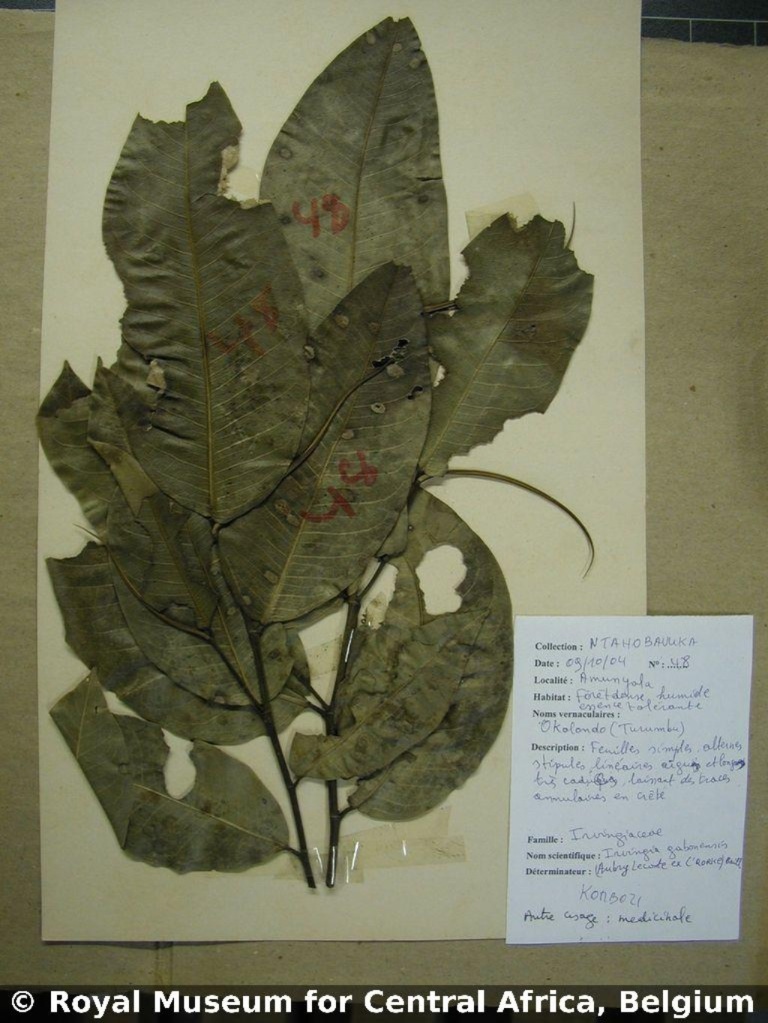 48
48
48
Collection : NTAHOBAVUKA
Date : 09/10/04 N° : 48
Localité : Amunyala
Habitat : Forêt dense, humide
essence tolérante
Noms vernaculaires :
Okolondo (Turumbu)
Description : Feuilles simples, alternes
stipules linéaires aigues et longues
très caduques, laissant des traces
annulaires en crête
Famille : Irvingiaceae
Nom scientifique : Irvingia gabonensis
Déterminateur : (Aubry Lecomte ex O'RORKE) Baill
Autre usage : medicinale
© Royal Museum for Central Africa, Belgium